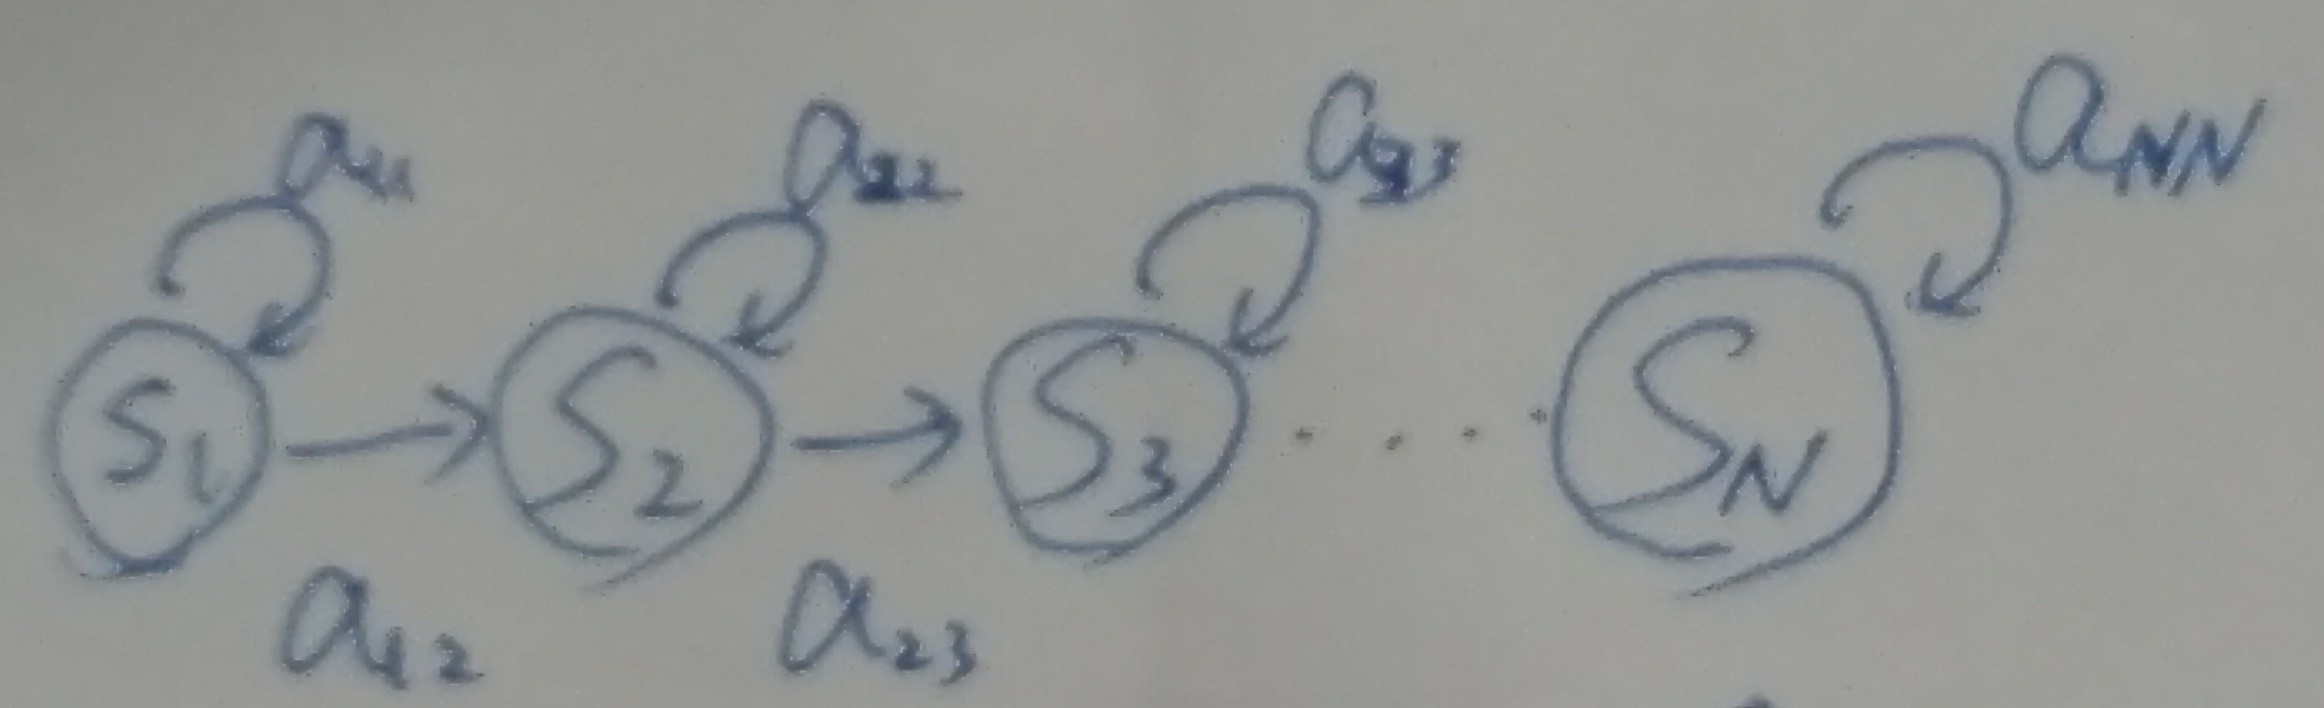 a₁₁ a₂₂ a₃₃ a_NN
S₁ S₂ S₃ . . . . S_N
a₁₂ a₂₃